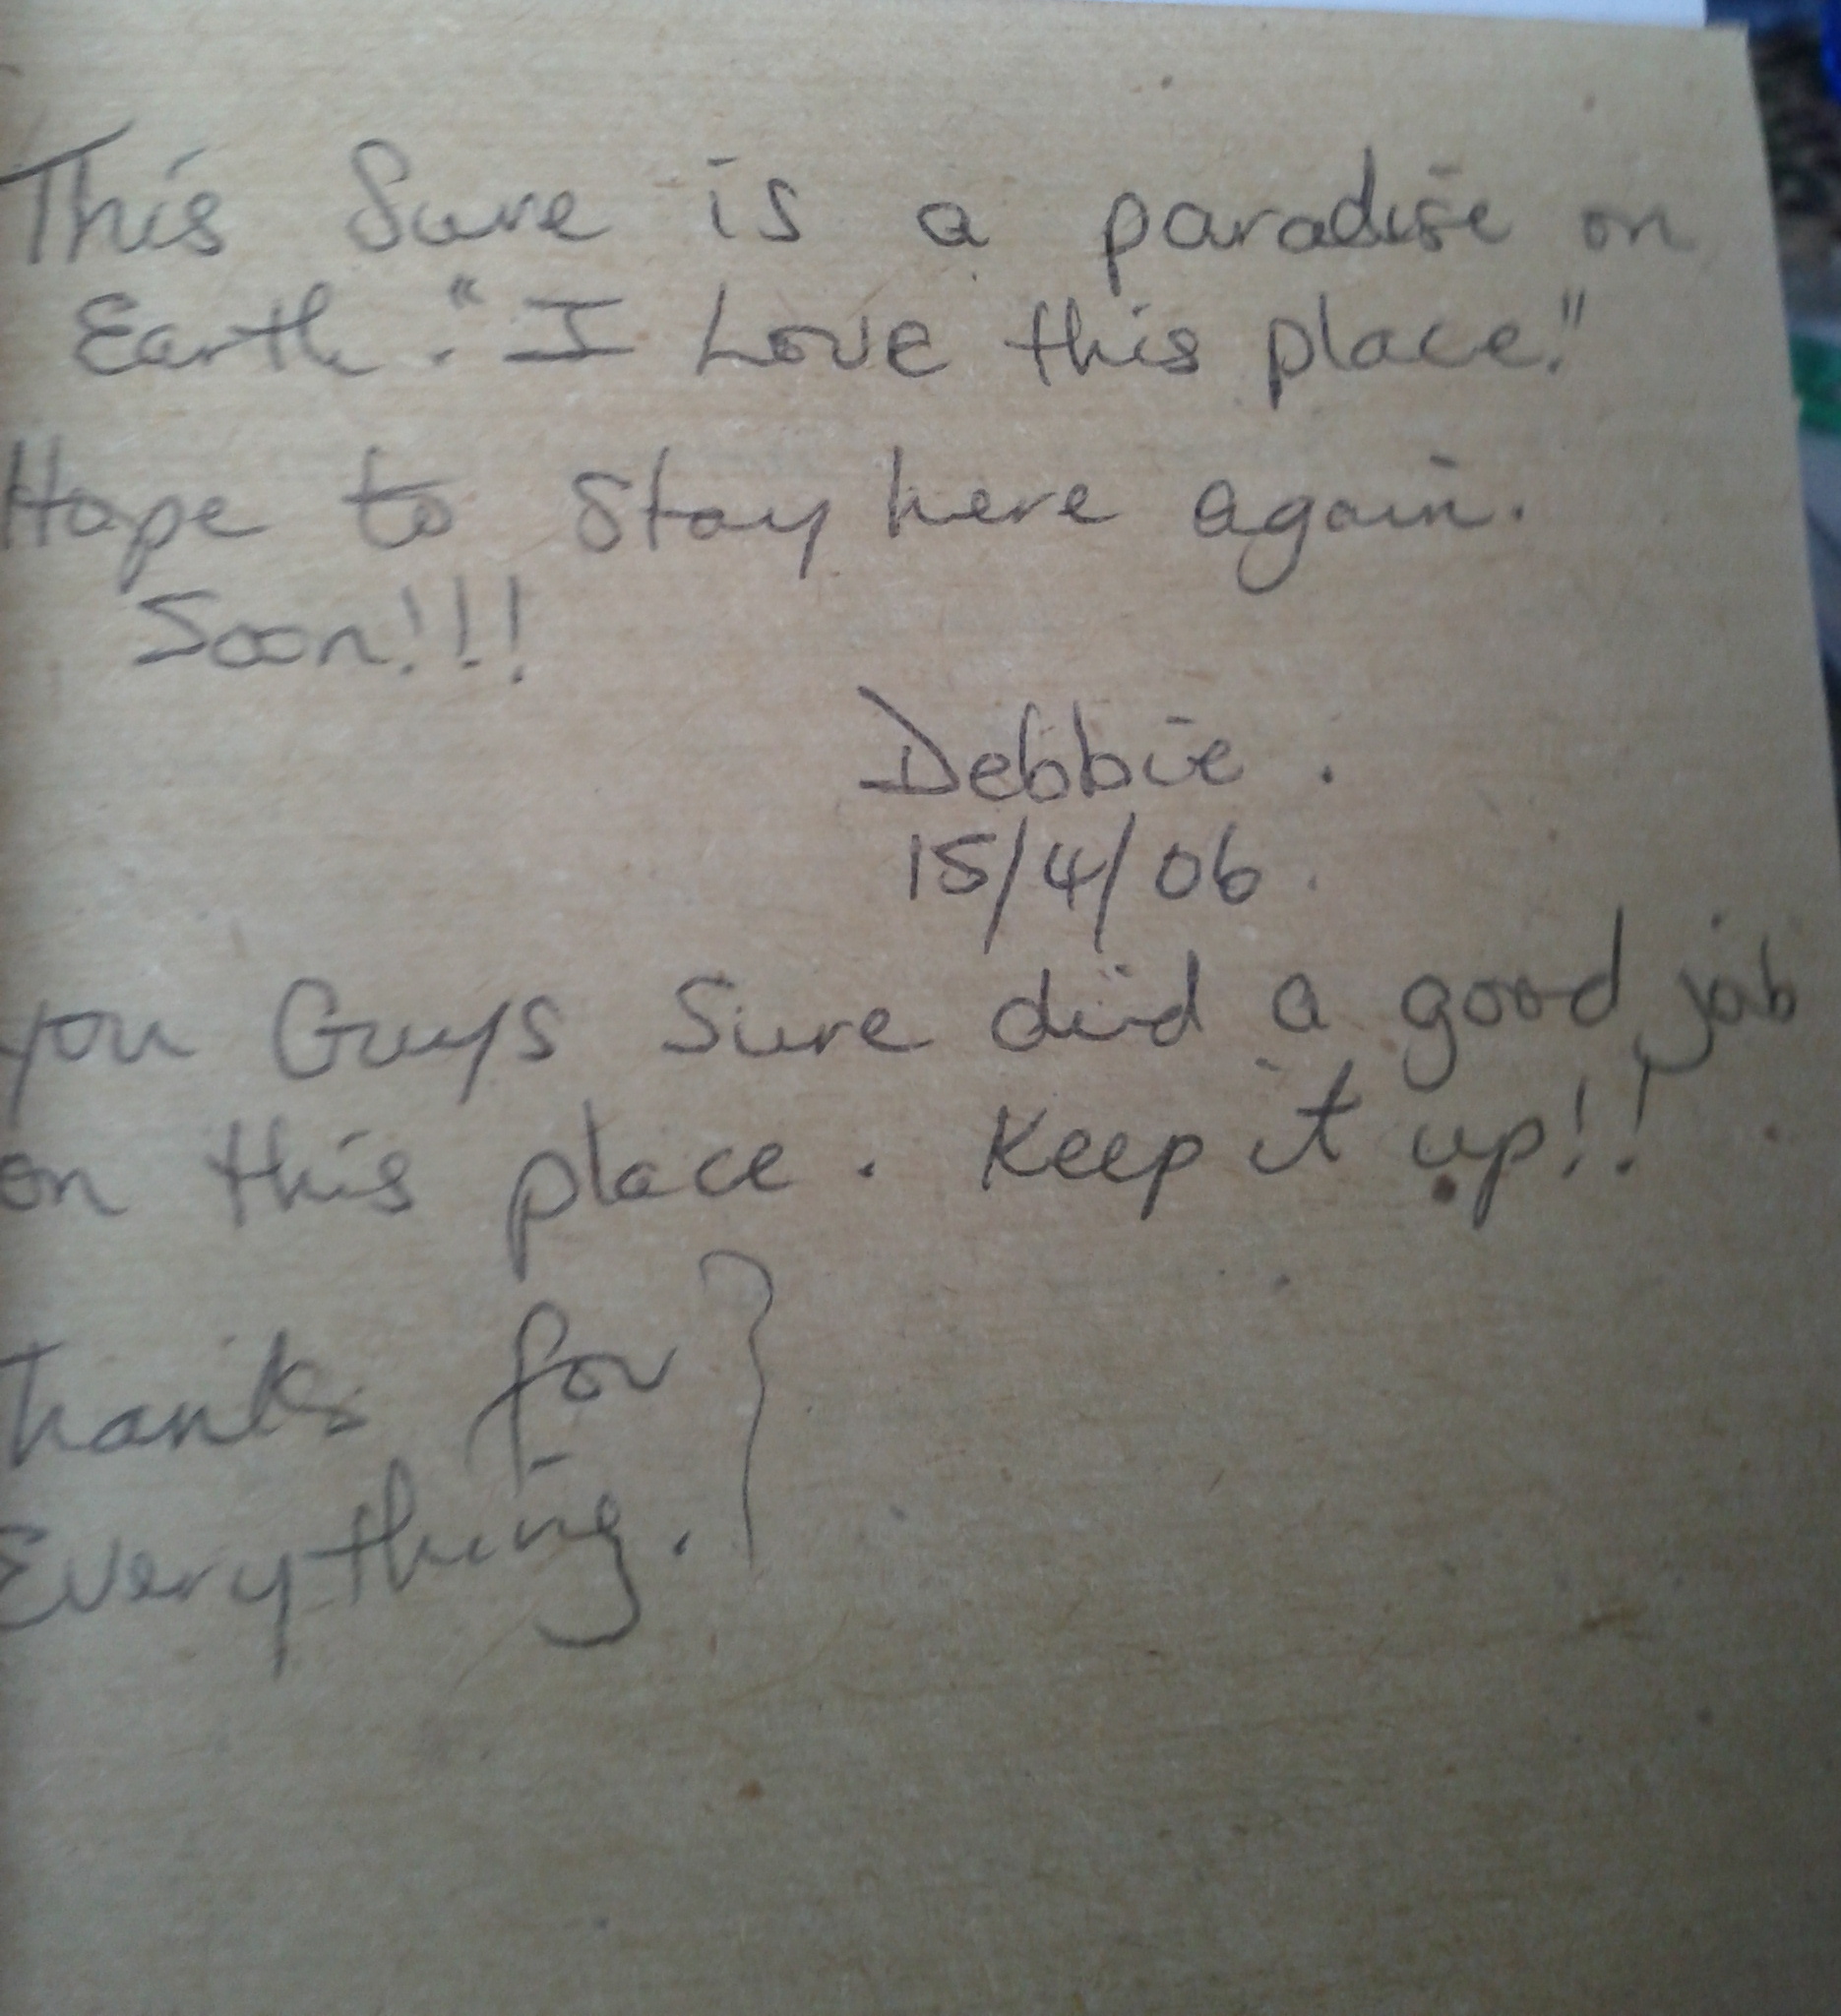 This Sure is a paradise on
Earth. "I Love this place."
Hope to Stay here again.
Soon!!!
Debbie.
15/4/06.
you Guys Sure did a good job
on this place. Keep it up!!
Thanks for }
Everything.